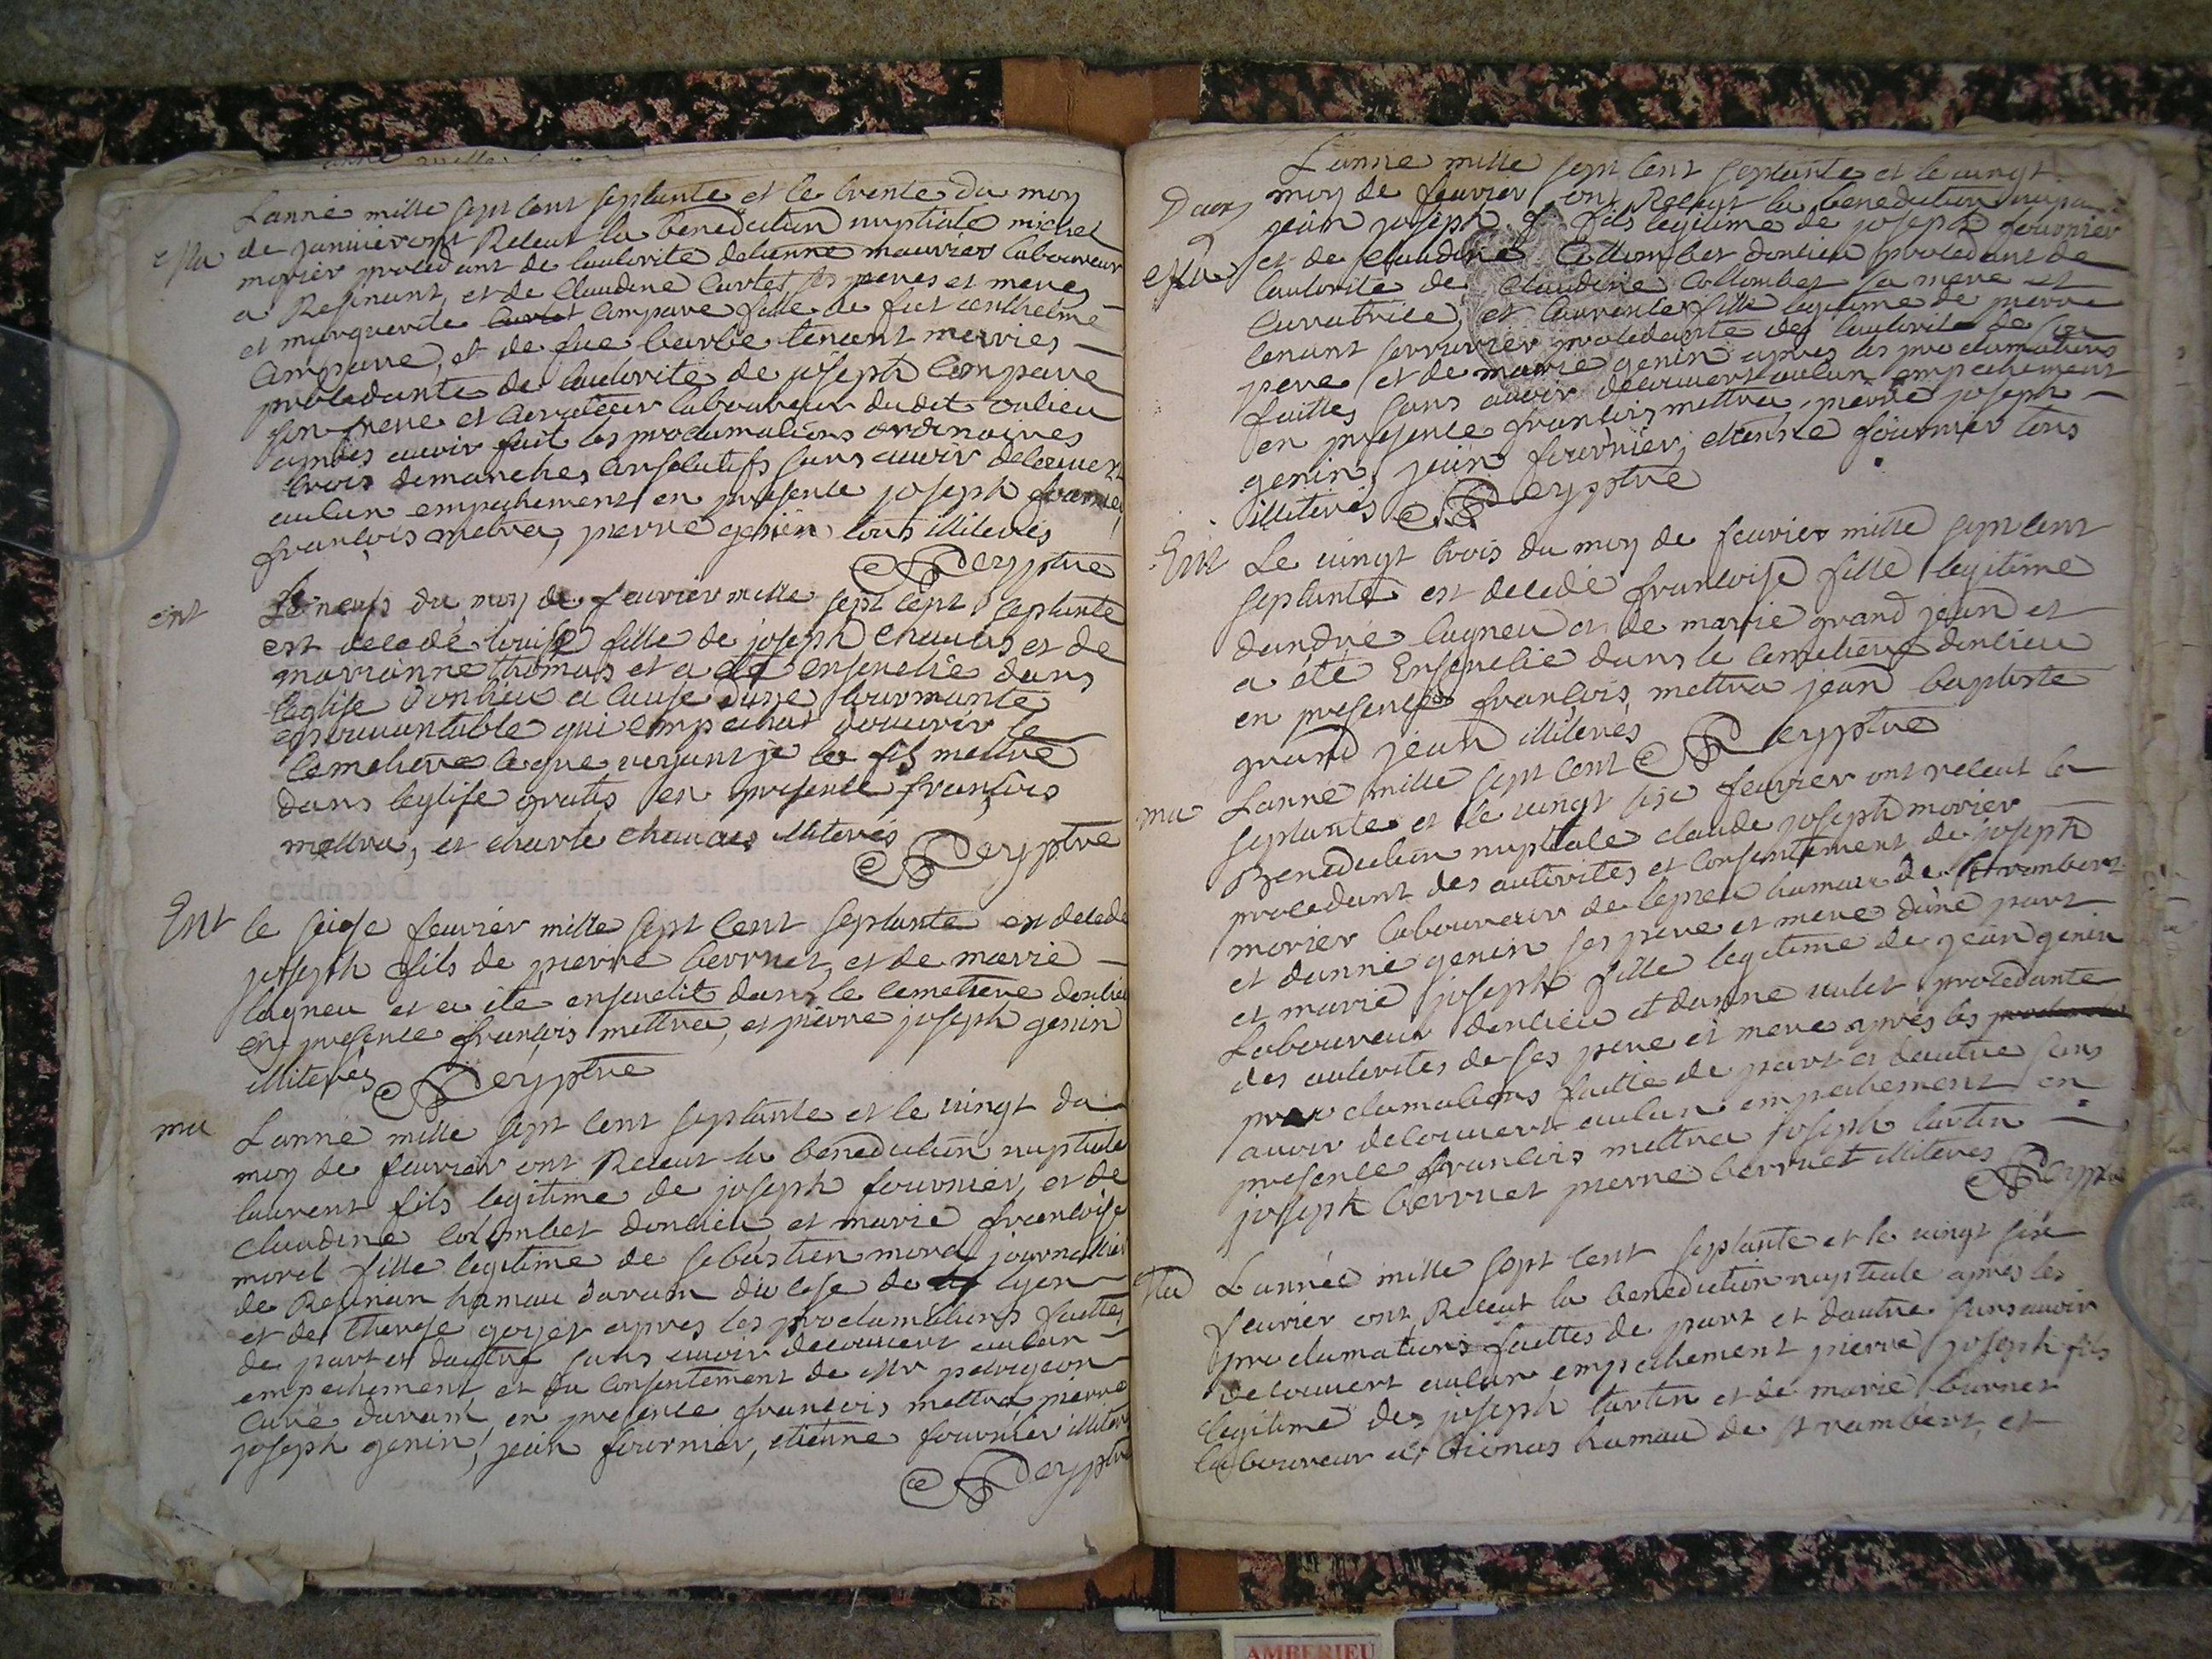 Lanné mille sept cent septante et le trente du moy
de janvier ont Receut la benediction nuptiale michel
morier procedant de lautorite detienne mauvier laboureur
a Resinant, et de Claudine Curtet ses peres et meres
et marguerite Compare fille de fut
Compare, et de fue barbe tenant marries
procedante de lautorite de joseph Compare
son frere et Curateur laboureur dudit
apres avoir fait les proclamations ordinaires
trois dimanches consecutifs sans avoir decouvert
aucun empechement en presence joseph
francois metra, pierre genin tous illiterés
Deyptre
ent
Le neuf du moy de feuvrier mille sept cent septante
est decedé louise fille de joseph Chavais et de
marrianne thomas et a été ensevelie dans
leglise donlieu a cause dune tourmante
epouvantable qui empechat douvrir le
cemetiere ce que voyant je la fis mettre
dans leglise gratis en presence francois
mettra, et charle chavais illiterés
Deyptre
Ent
le seise feuvrier mille sept cent septante est decedé
joseph fils de pierre berruet, et de marie
lagneu et a été ensevelit dans le cemetiere donlieu
en presence francois mettra, et pierre joseph genin
illiterés Deyptre
ma
Lanné mille sept cent septante et le vingt du
moy de feuvrier ont Receut la benediction nuptiale
laurent fils legitime de joseph fournier, et de
claudine colombet donlieu, et marie francoise
morel fille legitime de sebastien morel journallier
de Resinan hamau daram diocese de lyon
et de therese goyet apres les proclamations faittes
de part et dautre sans avoir decouvert aucun
empechement, et du consentement de mr
Curé daram, en presence francois mettra pierre
joseph genin, jean fournier, etienne fournier illiterés
Deyptre
Lanné mille sept cent septante et le vingt
moy de feuvrier ont Receut la benediction
jean joseph fils legitime de joseph fournier
et de claudine Collombet donlieu procedant de
lautorite de Claudine Collombet sa mere et
Curatrice, et laurence fille legitime de pierre
tenant serrurier procedante des lautorité de son
pere et de marie genin apres les proclamations
faittes sans avoir decouvert aucun empechement
en presence francois mettra, pierre joseph
genin, jean fournier, etienne fournier tous
illiterés Deyptre
Ent
Le vingt trois du moy de feuvrier mille sept cent
septante est decedé francoise fille legitime
dandré lagneu et de marie grand jean et
a été Ensevelie dans le cemetiere donlieu
en presence francois mettra jean baptiste
grand jean illiterés Deyptre
ma
Lanné mille sept cent
septante et le vingt six feuvrier ont receut la
Benediction nuptiale claude joseph morier
procedant des autorités et consentement de joseph
morier laboureur de hamau de st rambert
et danne genin ses pere et mere dune part
et marie joseph fille legitime de jean genin
Laboureur donlieu et danne procedante
des autorités de ses pere et mere apres les
proclamations faitte de part et dautre sans
avoir decouvert aucun empechement en
presence francois mettra joseph tartin
joseph berruet pierre berruet illiterés
Deyptre
Ma
Lannée mille sept cent septante et le vingt six
feuvrier ont Receut la benediction nuptiale apres les
proclamations faittes de part et dautre sans avoir
decouvert aucun empechement pierre joseph fils
legitime de joseph tartin et de marie burnet
laboureur a hamau de st rambert, et
AMBERIEU